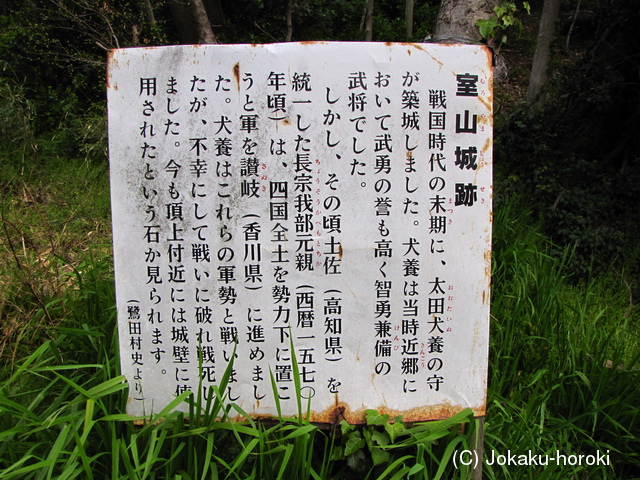 室山城跡
むろ やま じょう せき
戦国時代の末期に、太田犬養の守
まつき おおたいぬ
が築城しました。犬養は当時近郷に
きんごう
おいて武勇の誉も高く智勇兼備の
けんび
武将でした。
しかし、その頃土佐（高知県）を
統一した長宗我部元親（西暦一五七〇
ちょうそうかべもとちか
年頃）は、四国全土を勢力下に置こ
うと軍を讃岐（香川県）に進めまし
さぬき
た。犬養はこれらの軍勢と戦いまし
たが、不幸にして戦いに破れ戦死し
ました。今も頂上付近には城壁に使
用されたという石か見られます。
（鷺田村史より）
(C) Jokaku-horoki